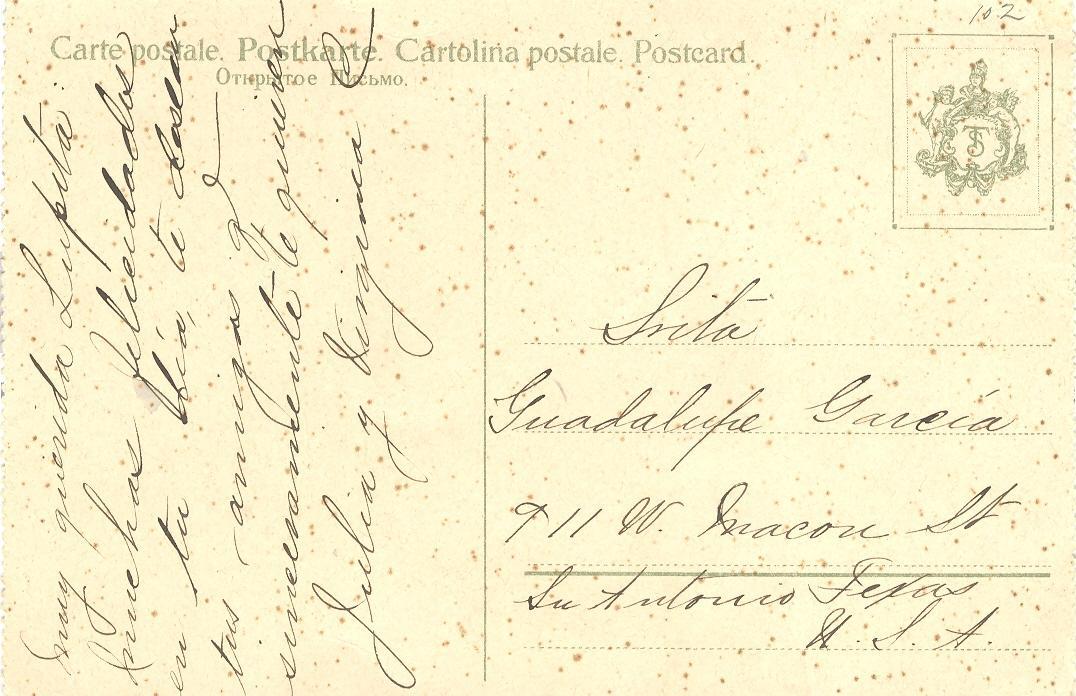 102
Carte postale. Postkarte. Cartolina postale. Postcard.
Открытое Письмо.
TS
muy querida Lupita:
Muchas felicidades
en tu día, te desean
tus amigas q
sinceramente te quieren
Julia y Virginia
Srita
Guadalupe García
911 W. Macon St
Sn Antonio Texas
U. S. A.